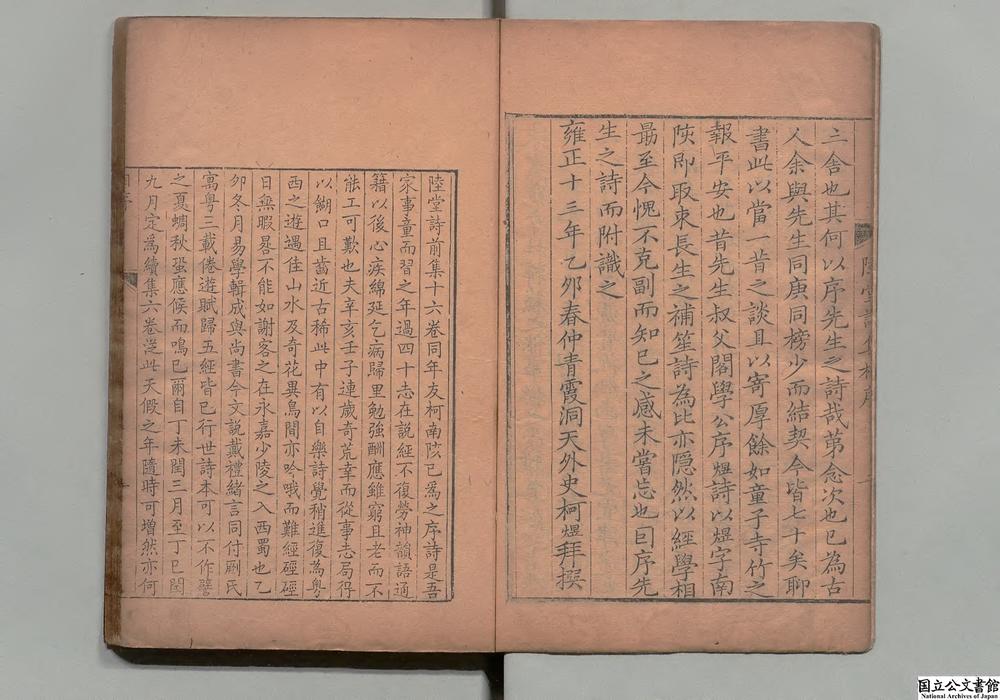 二舍也其何以序先生之詩哉第念次也已為古
人余與先生同庚同榜少而結契今皆七十矣聊
書此以當一昔之談且以寄厚餘如童子寺竹之
報平安也昔先生叔父閣學公序煜詩以煜字南
陔即取朿長生之補笙詩為比亦隱然以經學相
勗至今愧不克副而知己之感未嘗忘也曰序先
生之詩而附識之
雍正十三年乙夘春仲青霞洞天外史柯煜拜撰
陸堂詩前集十六卷同年友柯南陔已為之序詩是吾
家事童而習之年過四十志在說經不復勞神韻語通
籍以後心疾綿延乞病歸里勉強酬應雖窮且老而不
能工可歎也夫辛亥壬子連歲奇荒幸而從事志局得
以餬口且齒近古稀此中有以自樂詩覺稍進復為粵
西之遊遇佳山水及奇花異鳥間亦吟哦而難經硜硜
日無暇晷不能如謝客之在永嘉少陵之入西蜀也乙
夘冬月易學輯成與尚書今文說戴禮緒言同付剞氏
寓粵三載倦遊賦歸五經皆已行世詩本可以不作譬
之夏蜩秋蛩應候而鳴已爾自丁未閏三月至丁巳閏
九月定為續集六卷從此天假之年隨時可增然亦何
国立公文書館
National Archives of Japan